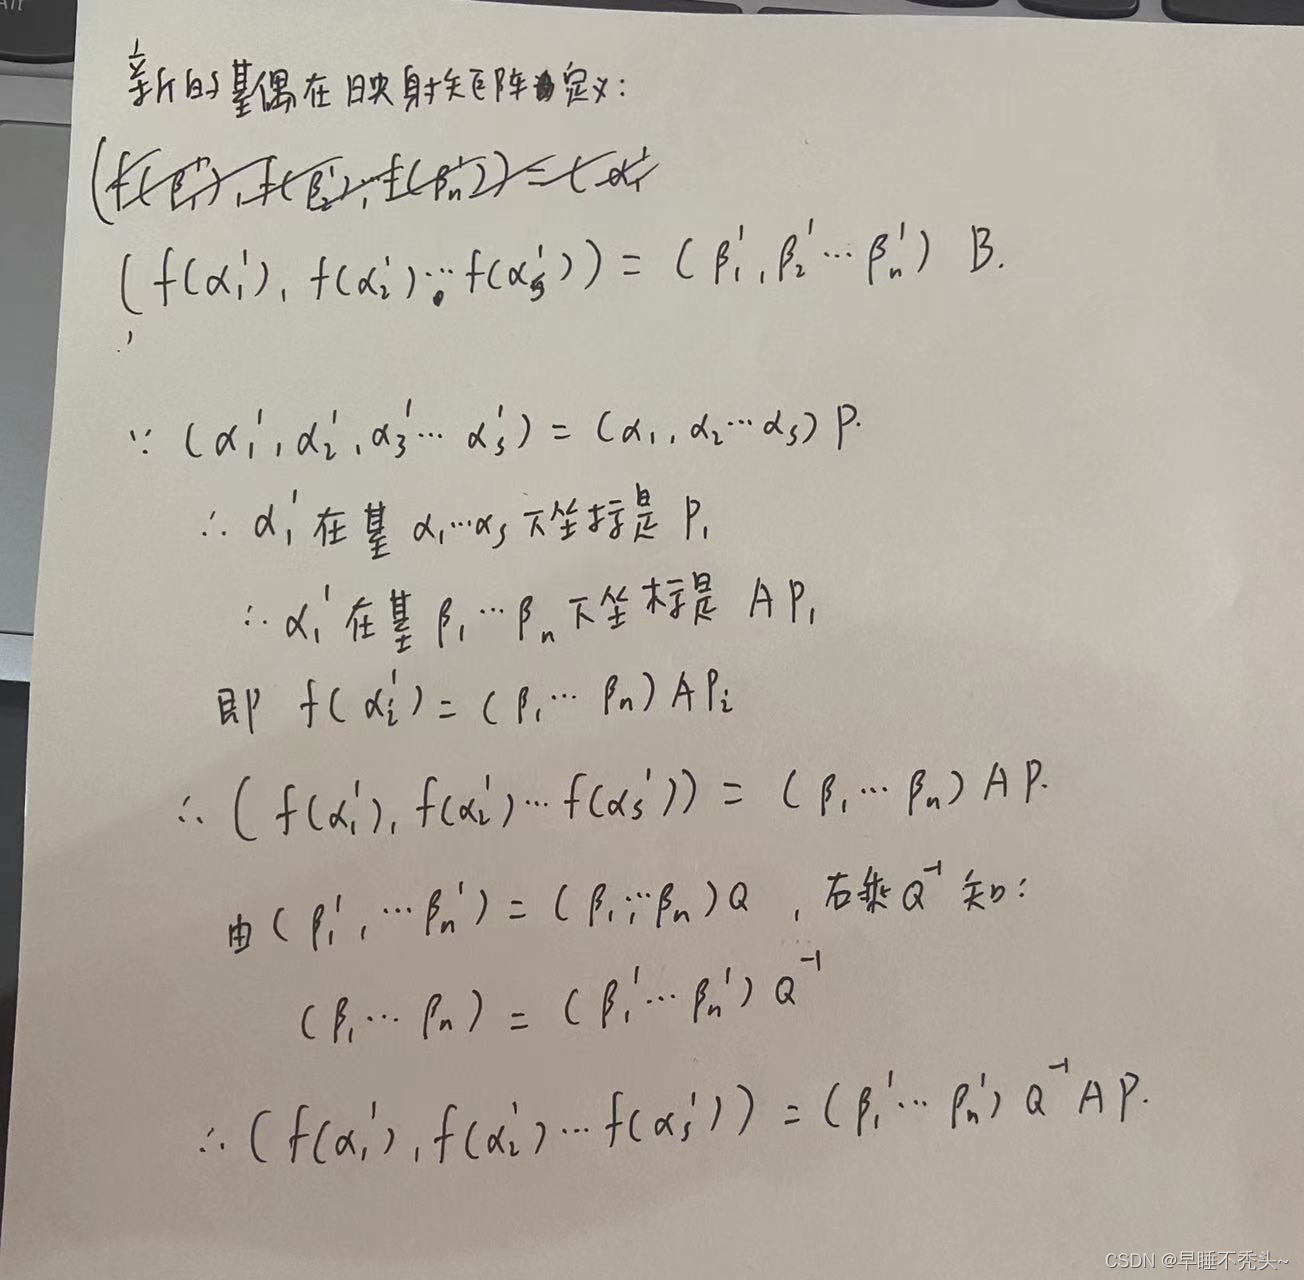 新的基偶在映射矩阵定义:
(f(β₁'), f(β₂')…f(βₙ')) = (α₁'
(f(α₁'), f(α₂')…f(αₛ')) = (β₁', β₂'…βₙ') B.
∵ (α₁', α₂', α₃'… αₛ') = (α₁, α₂…αₛ) P.
∴ α₁' 在基 α₁…αₛ 下坐标是 P₁
∴ α₁' 在基 β₁…βₙ 下坐标是 A P₁
即 f(αᵢ') = (β₁… βₙ) A Pᵢ
∴ (f(α₁'), f(α₂')…f(αₛ')) = (β₁…βₙ) A P.
由 (β₁', …βₙ') = (β₁, …βₙ) Q , 右乘 Q⁻¹ 知:
(β₁… βₙ) = (β₁'… βₙ') Q⁻¹
∴ (f(α₁'), f(α₂')…f(αₛ')) = (β₁'… βₙ') Q⁻¹ A P.
CSDN @早睡不秃头~